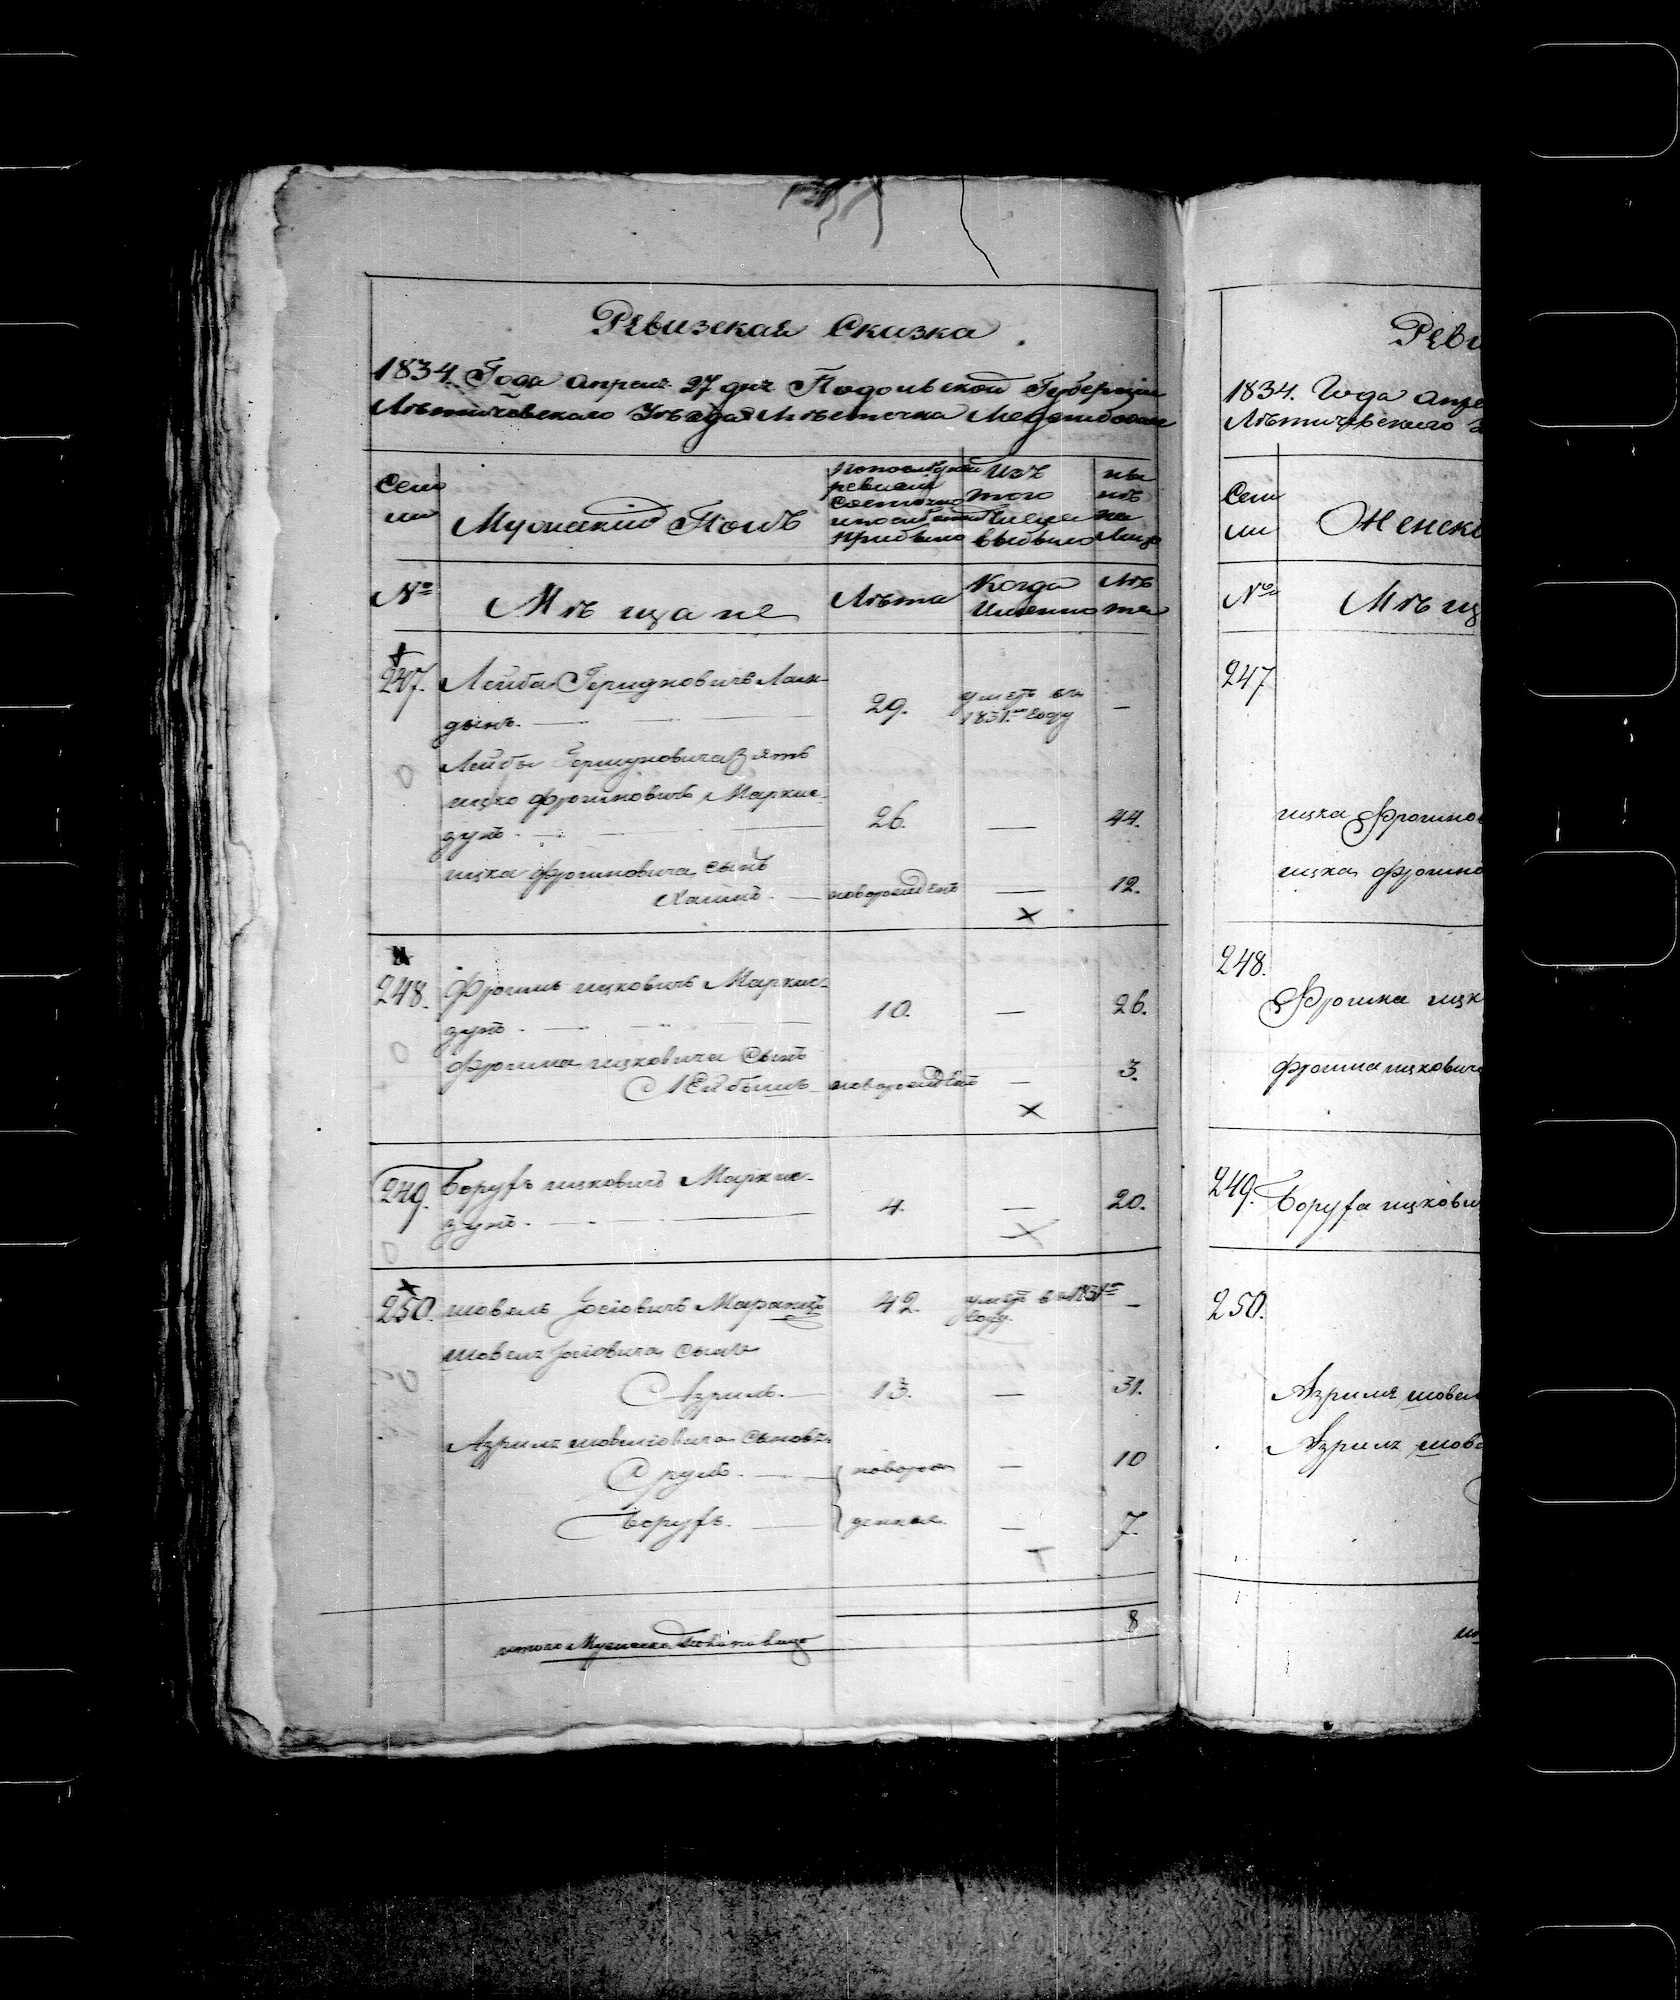 Ревизская Сказка
1834. Года апреля 27 дня Подольской Губернии
Лѣтичевскаго Уѣзда Мѣстечка Меджибожа
Семьи
Мужский Полъ
По последней ревизии состояло и после того прибыло
Изъ того числа выбыло
ны нѣ на лицо
№
Мѣщане
Лѣта
Когда Именно
Лѣ та
247. Лейба Гершковичъ Лан-
дынъ. 29. умеръ въ 1831м году —
Лейбы Гершковича Зять
ицко Фроимовичъ Маркис-
зунъ. 26. — 44.
ицка Фроимовича сынъ
Хаимъ. новорожденъ — 12.
248. Фроимъ ицковичъ Маркис-
зунъ. 10. — 26.
Фроима ицковича Сынъ
Лейбишъ новорожденъ — 3.
249. Борухъ ицковичъ Маркис-
зунъ. 4. — 20.
250. шовель Іосіовичъ 42. умеръ въ 1831м году. —
шовеля Іосіовича сынъ
Азриль. 13. — 31.
Азриля шовеліовича сыновья
Срулъ. новорож — 10
Борухъ. денные. — 7.
итого Мужеска Пола на лицо 8
Реви
1834. Года апре
Лѣтичевскаго
Семьи
Женск
№
Мѣщ
247
ицка Фроимов
ицка Фроимо
248.
Фроима ицк
Фроима ицкович
249. Боруха ицкови
250.
Азриля шовел
Азриля шово